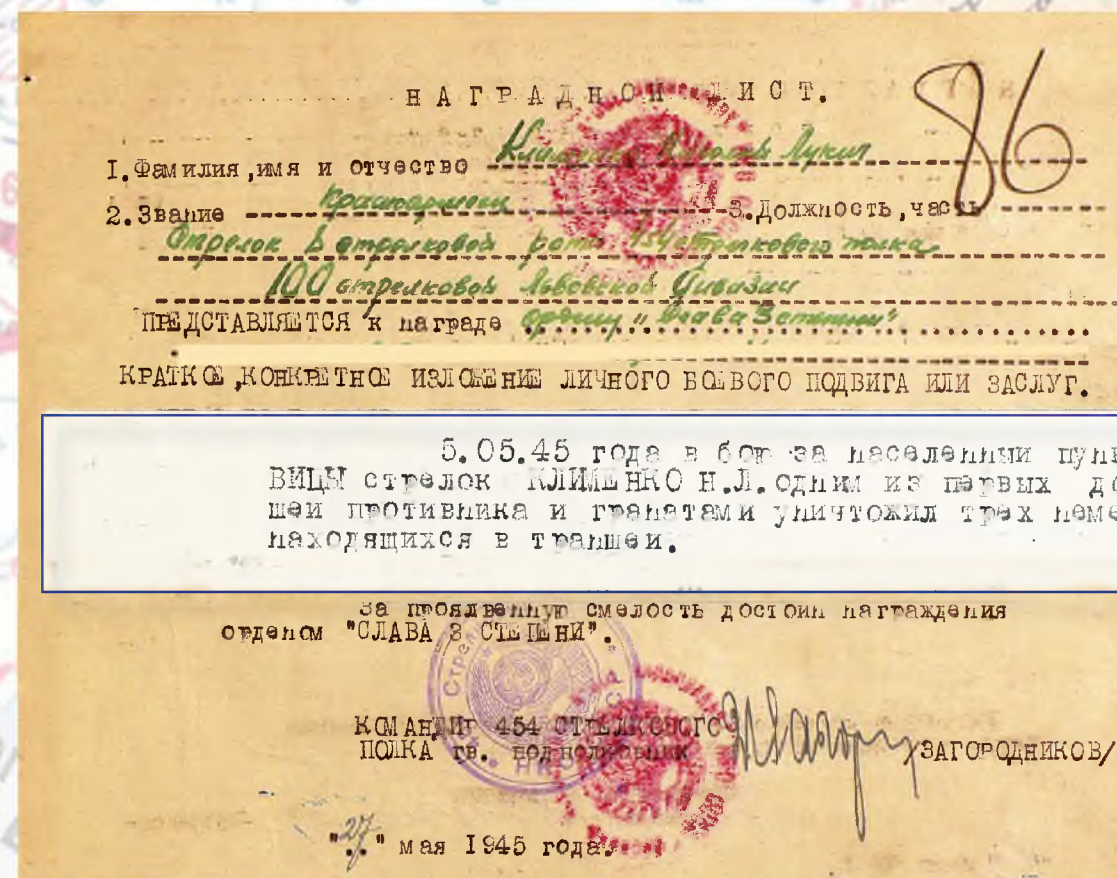 НАГРАДНОЙ ЛИСТ.
86
1. Фамилия, имя и отчество Лукич
2. Звание 3. Должность, часть
Стрелок стрелковой роты 454 стрелкового полка
100 стрелковой Львовской Дивизии
ПРЕДСТАВЛЯЕТСЯ к награде ордену "Слава 3 степени"
КРАТКОЕ, КОНКРЕТНОЕ ИЗЛОЖЕНИЕ ЛИЧНОГО БОЕВОГО ПОДВИГА ИЛИ ЗАСЛУГ.
5.05.45 года в бою за населенный пунк
ВИЦЫ стрелок КЛИМЕНКО Н.Л. одним из первых до
шеи противника и гранатами уничтожил трех неме
находящихся в траншеи.
За проявленную смелость достоин награждения
орденом "СЛАВА 3 СТЕПЕНИ".
КОМАНДИР 454 СТРЕЛКОВОГО
ПОЛКА гв. подполковник ЗАГОРОДНИКОВ/
"27" мая 1945 года.